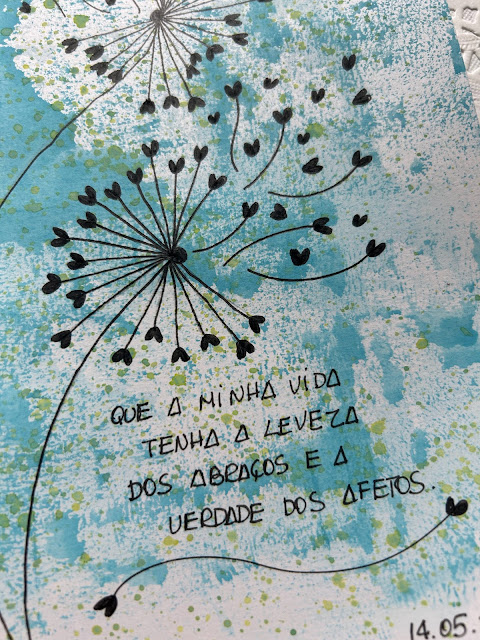 QUE A MINHA VIDA
TENHA A LEVEZA
DOS ABRAÇOS E A
VERDADE DOS AFETOS..
14.05.